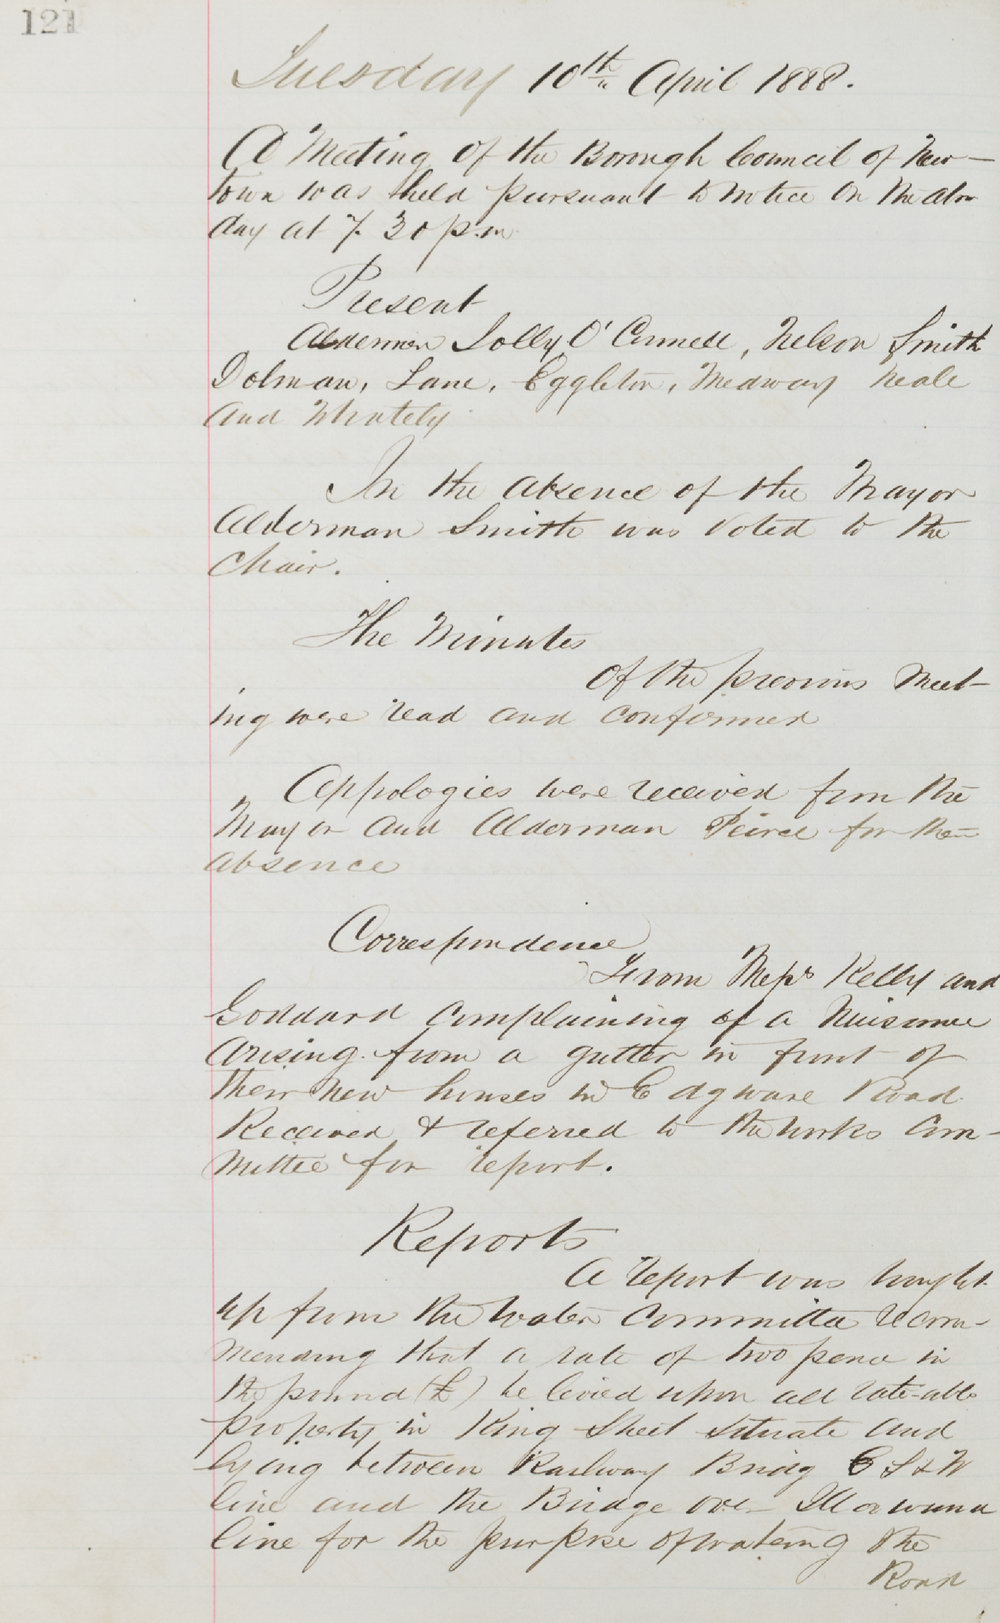 121
Tuesday 10th April 1888.
A Meeting of the Borough Council of New-
town was held pursuant to notice on the abov
day at 7.30 p.m
Present
Aldermen Jolly, O'Connell, Nelson Smith
Dolman, Lane, Eggleton, Medway Neale
and Whately
In the absence of the Mayor
Alderman Smith was voted to the
Chair.
The Minutes
Of the previous Meet-
ing were read and confirmed
Appologies were received from the
Mayor and Alderman Peirce for their
absence
Correspondence
From Messrs Kelly and
Goddard complaining of a Nuisance
Arising from a gutter in front of
their new houses in Edgware Road
Received & referred to the Works Com-
mittee for report.
Reports
A report was bought
up from the Water Committee recom-
mending that a rate of two pence in
the pound (£) be levied upon all rate-able
property in King Street situate and
lying between Railway Bridg G S & W
line and the Bridge over Illawarra
line for the purpose of watering the
Road